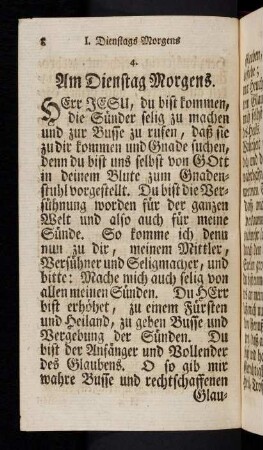 8 I. Dienstags Morgens
4.
Am Dienstag Morgens.
HErr JESU, du bist kommen,
die Sünder selig zu machen
und zur Busse zu rufen, daß sie
zu dir kommen und Gnade suchen,
denn du bist uns selbst von GOtt
in deinem Blute zum Gnaden-
stuhl vorgestellt. Du bist die Ver-
sühnung worden für der ganzen
Welt und also auch für meine
Sünde. So komme ich denn
nun zu dir, meinem Mittler,
Versühner und Seligmacher, und
bitte: Mache mich auch selig von
allen meinen Sünden. Du HErr
bist erhöhet, zu einem Fürsten
und Heiland, zu geben Busse und
Vergebung der Sünden. Du
bist der Anfänger und Vollender
des Glaubens. O so gib mir
wahre Busse und rechtschaffenen
Glau-